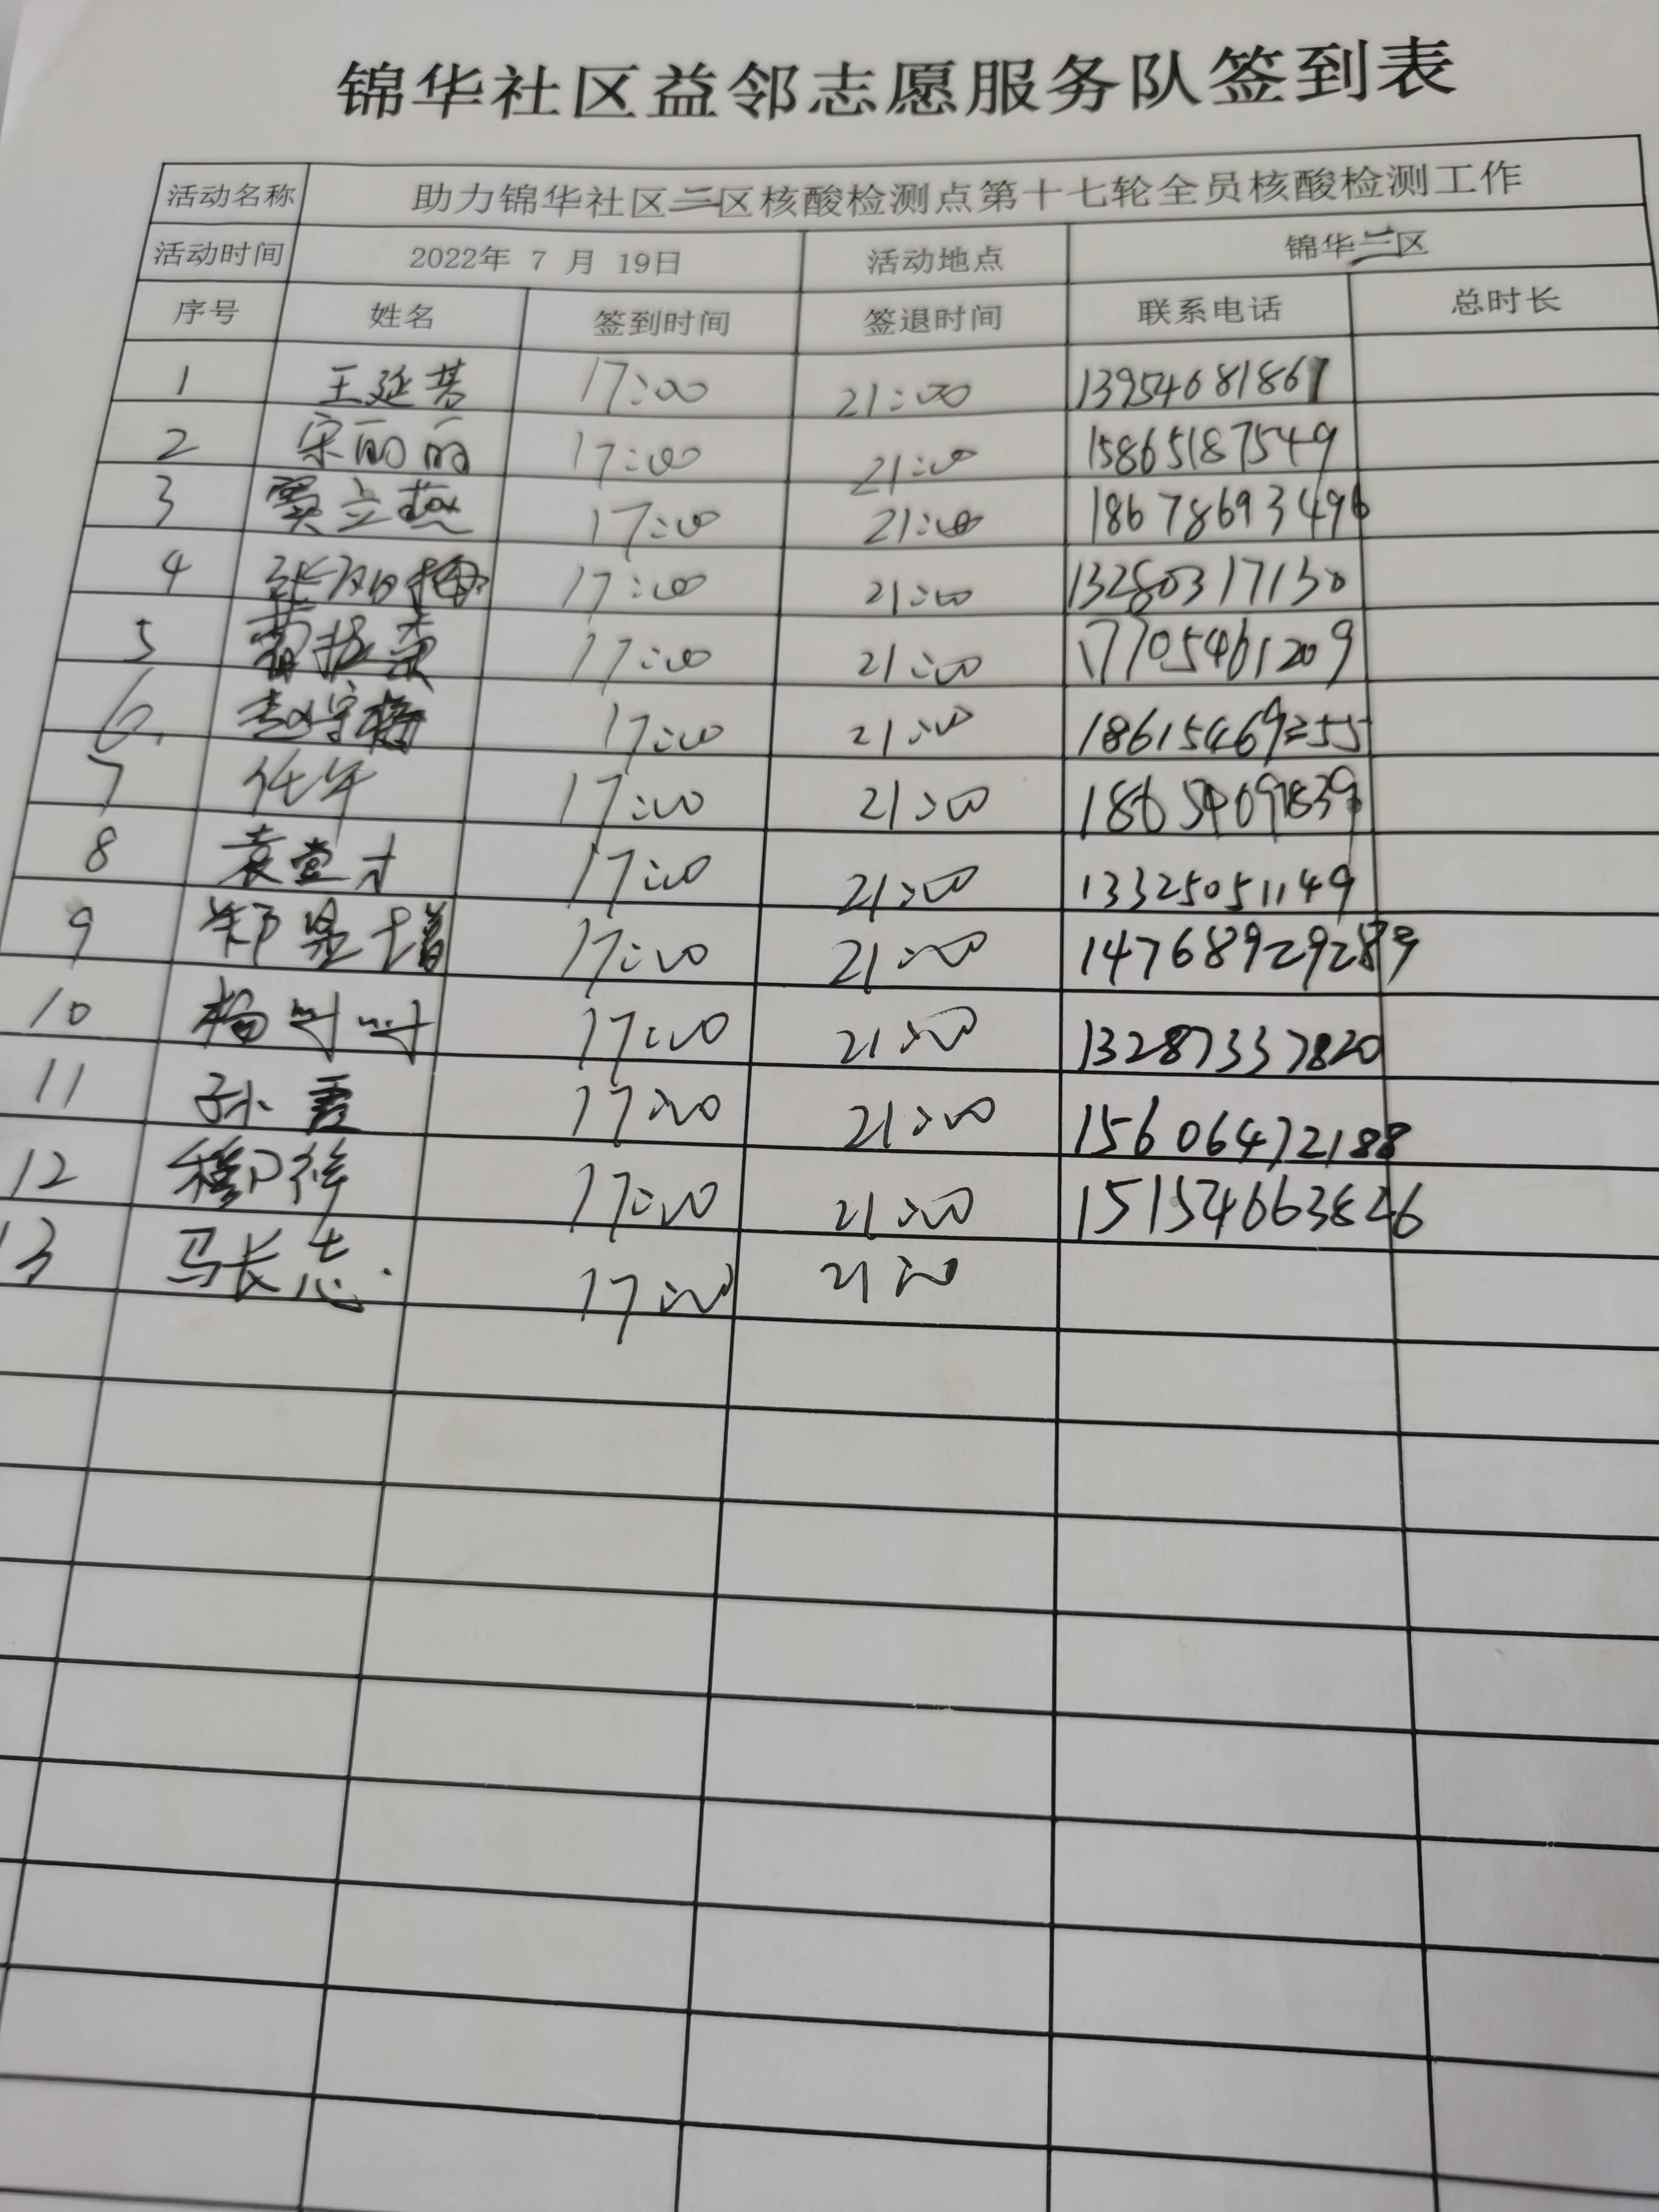 锦华社区益邻志愿服务队签到表
活动名称 助力锦华社区二区核酸检测点第十七轮全员核酸检测工作
活动时间 2022年 7 月 19日 活动地点 锦华二区
序号 姓名 签到时间 签退时间 联系电话 总时长
1 王延芳 17:00 21:00 13954681861
2 宋丽丽 17:00 21:00 15865187549
3 贾立燕 17:00 21:00 18678693496
4 17:00 21:00 13280317130
5 17:00 21:00 17705461209
6 17:00 21:00 18615469255
7 任年 17:00 21:00 18654091839
8 袁堂才 17:00 21:00 13325051149
9 17:00 21:00
10 杨叶叶 17:00 21:00 13287337820
11 孙 17:00 21:00 15606472188
12 穆 17:00 21:00
13 马长志 17:00 21:00